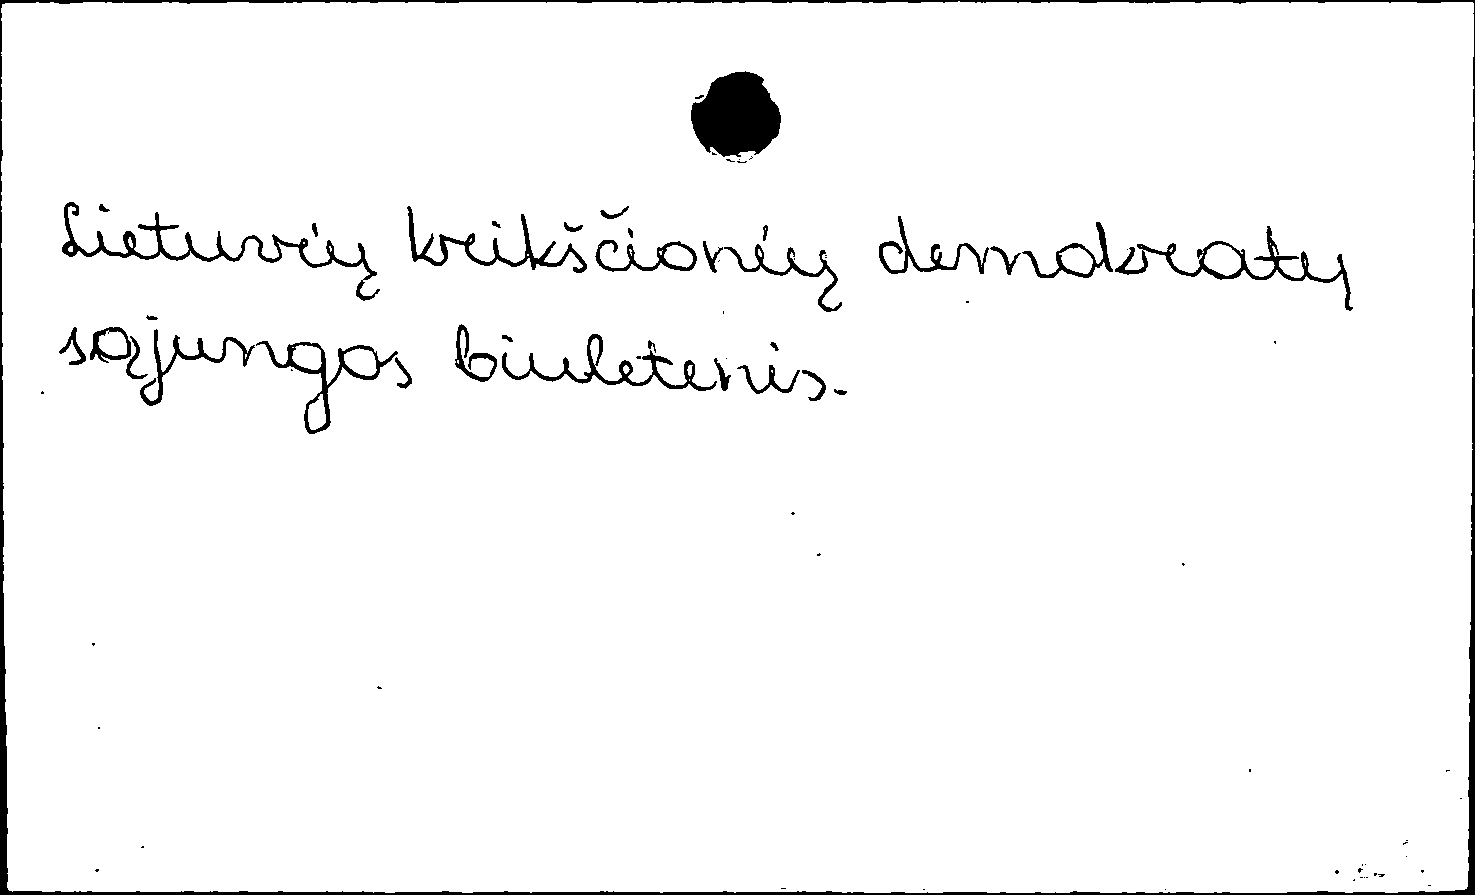 Lietuvių krikščionių demokratų
sąjungos biuletenis.